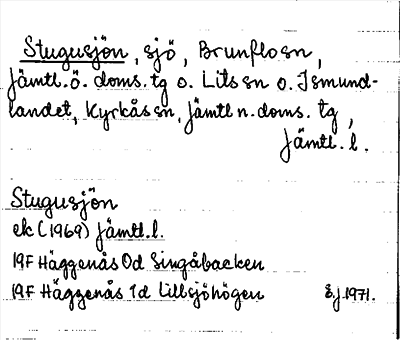 Stugusjön, sjö, Brunflosn,
Jämtl.ö. doms. tg o. Litssn o. Ismund-
landet, Kyrkåssn, Jämtl n. doms. tg,
Jämtl. l.
Stugusjön
ek (1969) Jämtl.l.
19F Häggenås 0d Singåbacken
19F Häggenås 1d Lillsjöhögen S.J 1971.